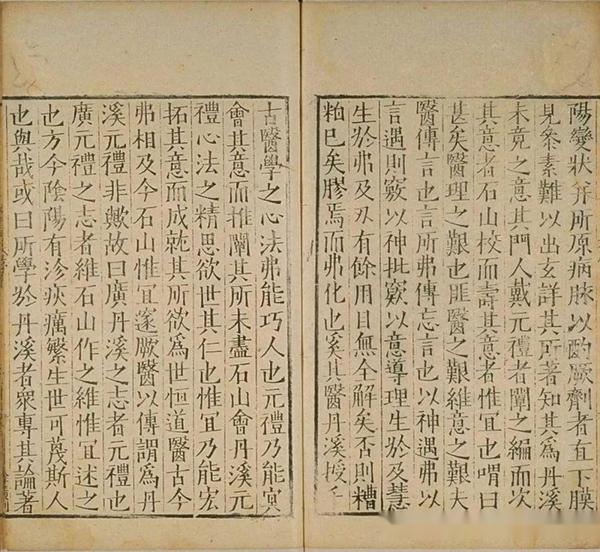 陽變狀并所原病脉以酌厥劑者直下膜
見叅素難以出玄詳其所著知其為丹溪
未竟之意其門人戴元禮者闡之編而次
其意者石山校而壽其意者惟宜也喟曰
甚矣醫理之艱也匪醫之艱維意之艱夫
醫傳言也言所弗傳忘言也以神遇弗以
言遇則竅以神批竅以意導理生於及慧
生於弗及刃有餘用目無全解矣否則糟
粕已矣膠焉而弗化也奚其醫丹溪授
古醫學之心法弗能巧人也元禮乃能冥
會其意而推闡其所未盡石山會丹溪元
禮心法之精思欲世其仁也惟宜乃能宏
拓其意而成就其所欲為世恒道醫古今
弗相及今石山惟宜遂厥醫以傳謂為丹
溪元禮非歟故曰廣丹溪之志者元禮也
廣元禮之志者維石山作之維惟宜述之
也方今陰陽有沴疾癘繁生世可蔑斯人
也與哉或曰所學於丹溪者衆專其論著